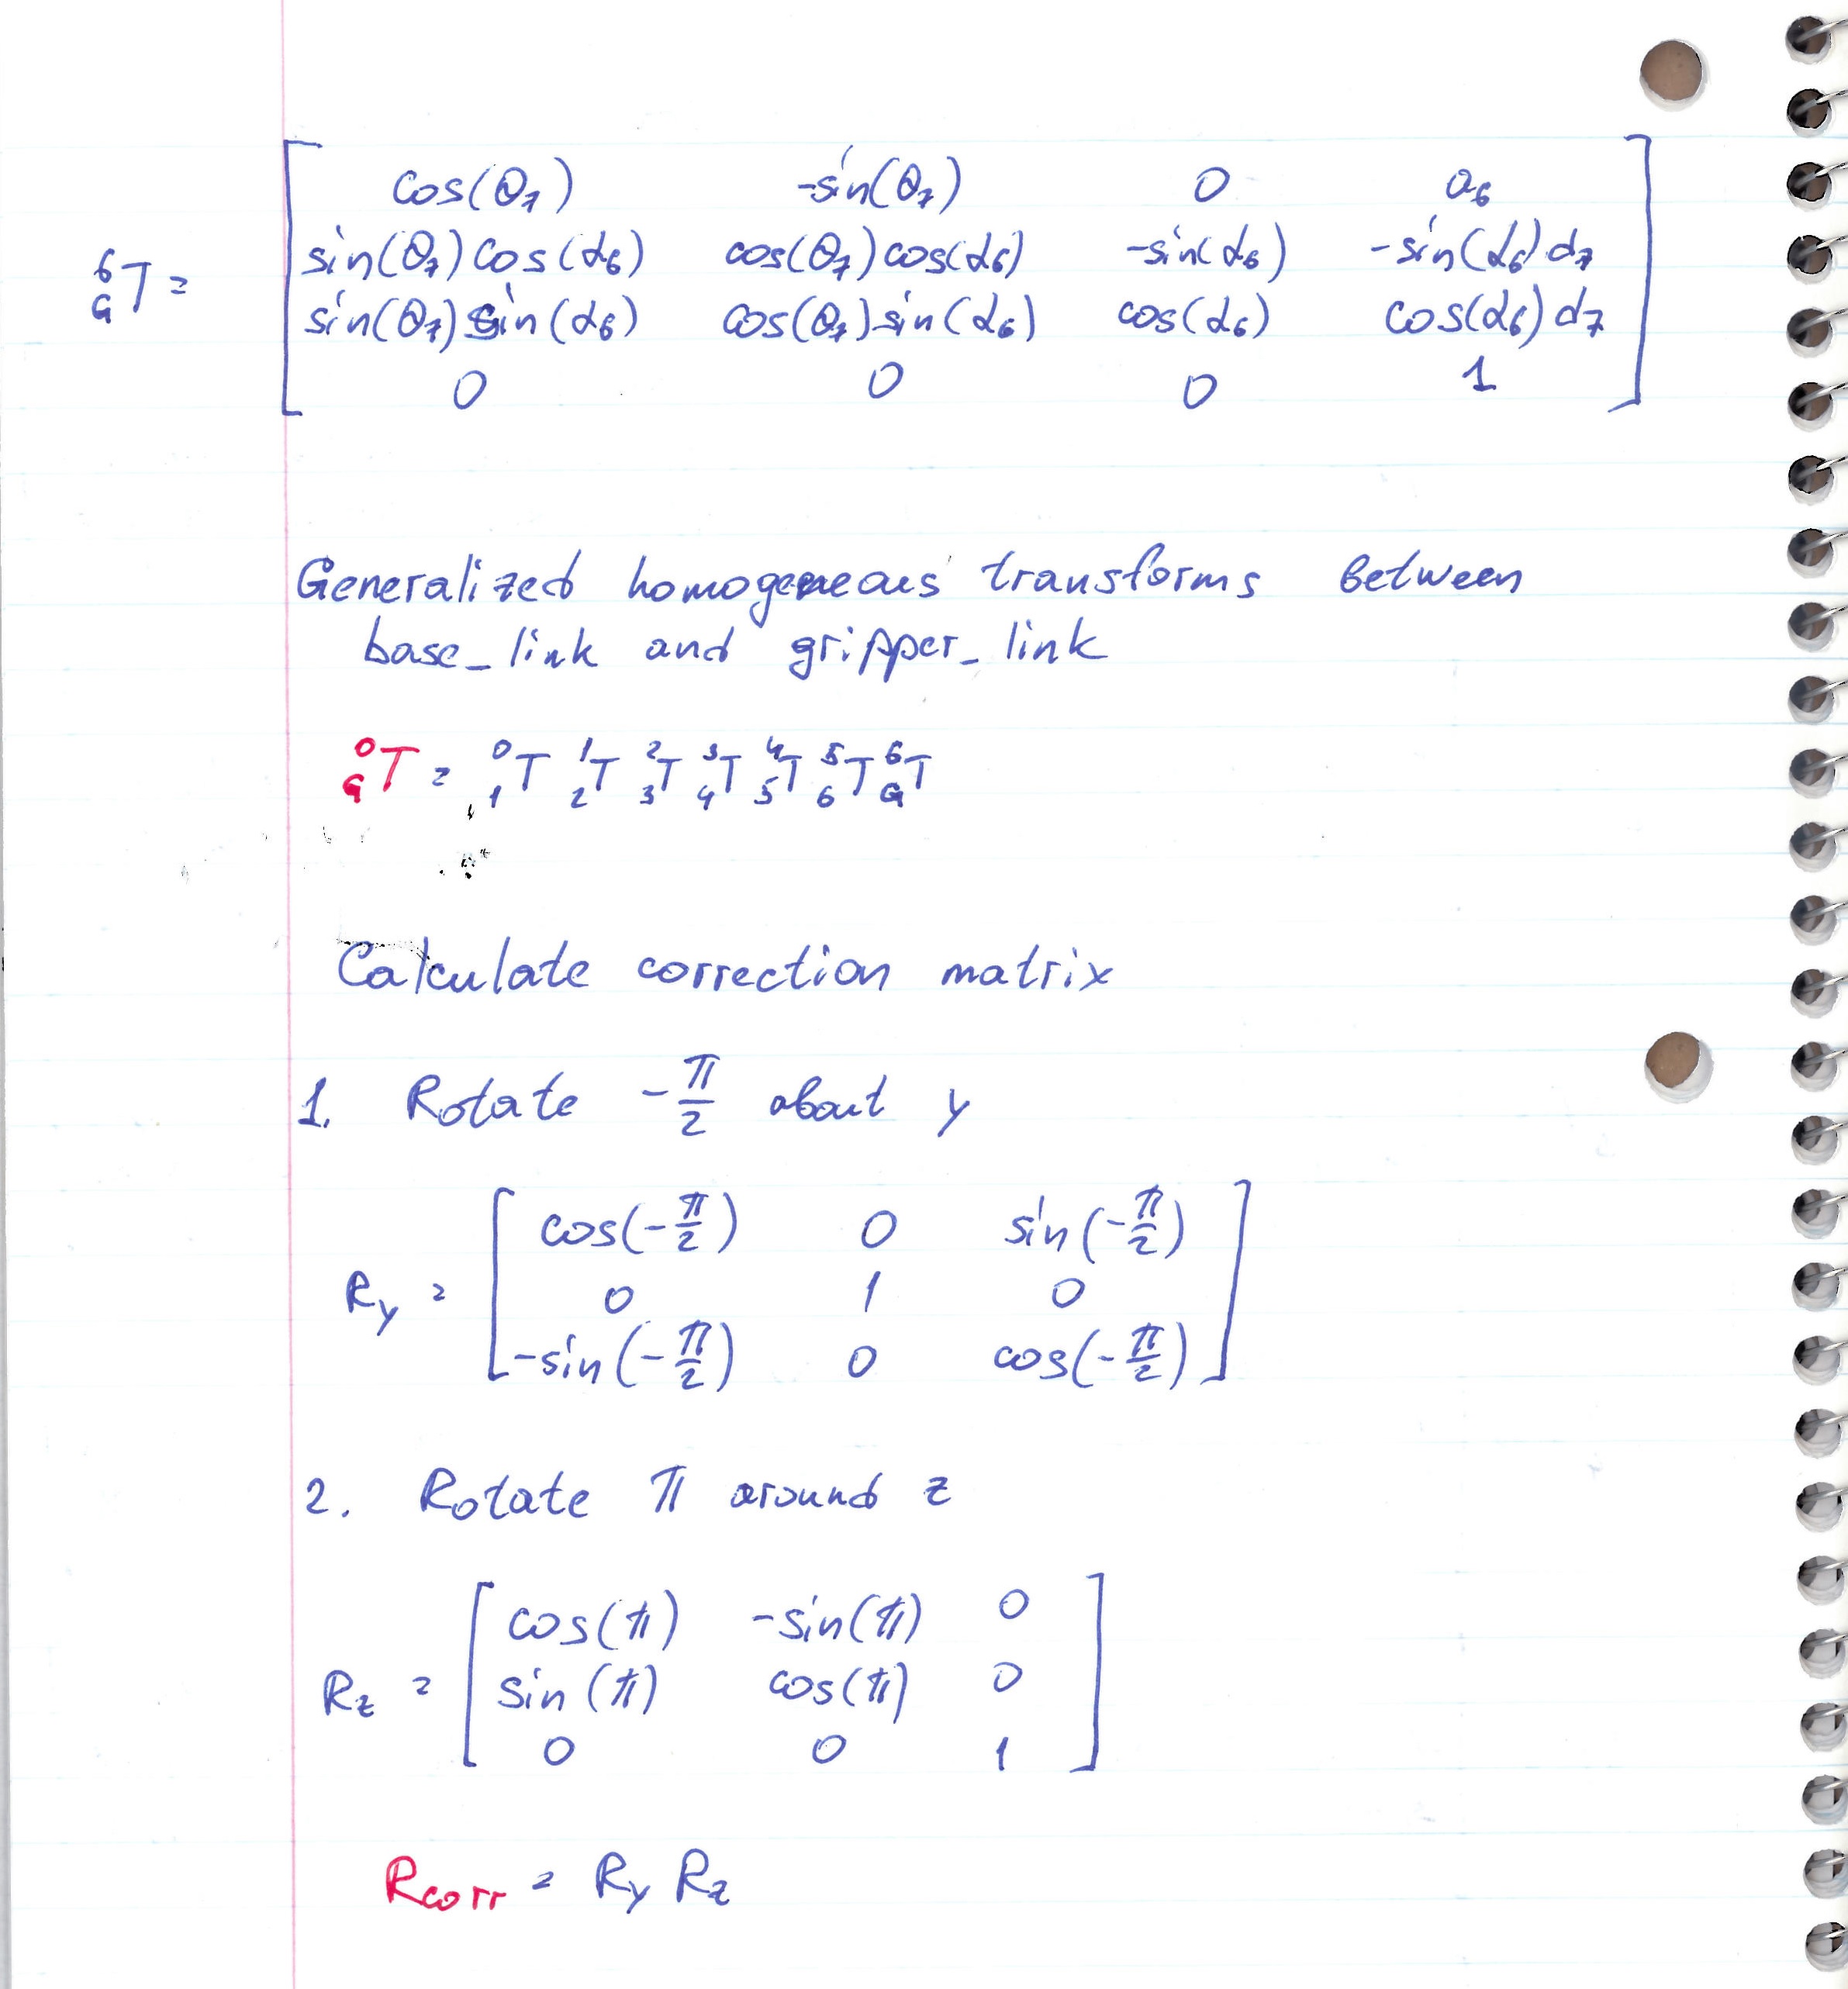 cos(θ₇) -sin(θ₇) 0 a₆
⁶_GT = sin(θ₇)cos(α₆) cos(θ₇)cos(α₆) -sin(α₆) -sin(α₆)d₇
sin(θ₇)sin(α₆) cos(θ₇)sin(α₆) cos(α₆) cos(α₆)d₇
0 0 0 1
Generalized homogeneous transforms between
base_link and gripper_link
⁰_GT = ⁰₁T ¹₂T ²₃T ³₄T ⁴₅T ⁵₆T ⁶_GT
Calculate correction matrix
1. Rotate -π/2 about y
cos(-π/2) 0 sin(-π/2)
Ry = 0 1 0
-sin(-π/2) 0 cos(-π/2)
2. Rotate π around z
cos(π) -sin(π) 0
Rz = sin(π) cos(π) 0
0 0 1
Rcorr = Ry Rz